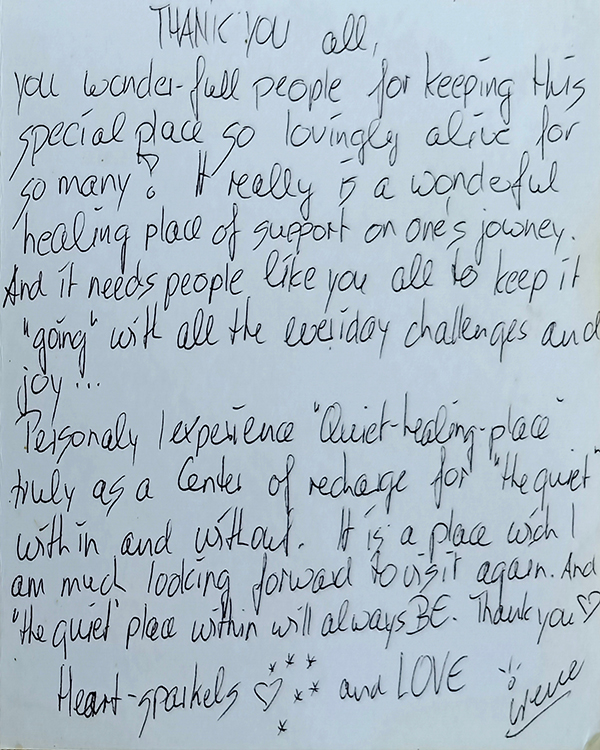 THANK YOU all,
you wonder-full people for keeping this
special place so lovingly alive for
so many! It really is a wonderful
healing place of support on one's journey.
And it needs people like you all to keep it
"going" with all the everiday challenges and
joy...
Personaly I experience "Quiet-healing-place"
truly as a Center of recharge for "the quiet"
within and without. It is a place wich I
am much looking forward to visit again. And
"the quiet" place within will always BE. Thank you ♡
Heart-sparkels ♡ and LOVE Irene